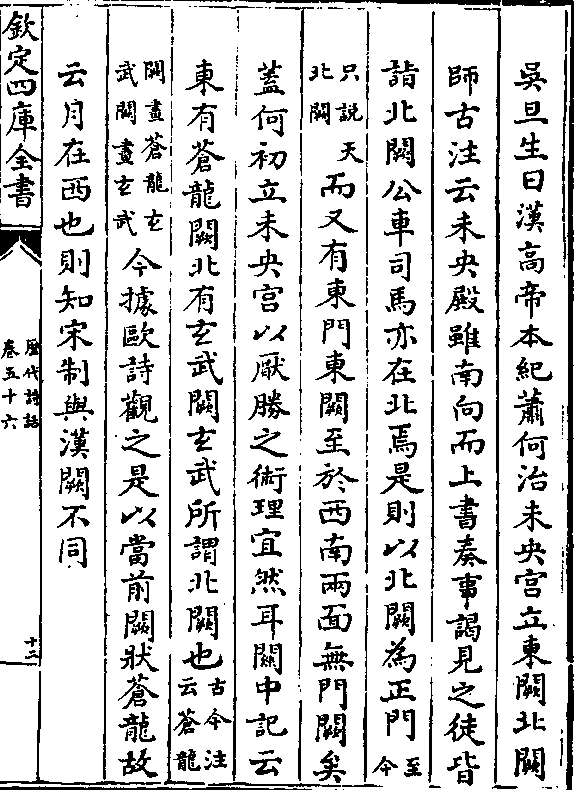 吳旦生曰漢高帝本紀蕭何治未央宫立東闕北闕
師古注云未央殿雖南向而上書奏事謁見之徒皆
詣北闕公車司馬亦在北焉是則以北闕為正門至今
只説天北闕而又有東門東闕至於西南兩面無門闕矣
蓋何初立未央宫以厭勝之術理宜然耳關中記云
東有蒼龍闕北有玄武闕玄武所謂北闕也古今注云蒼龍
闕畫蒼龍玄武闕畫玄武今據歐詩觀之是以當前闕狀蒼龍故
云月在西也則知宋制與漢闕不同
欽定四庫全書
歴代詩話
卷五十六
十二